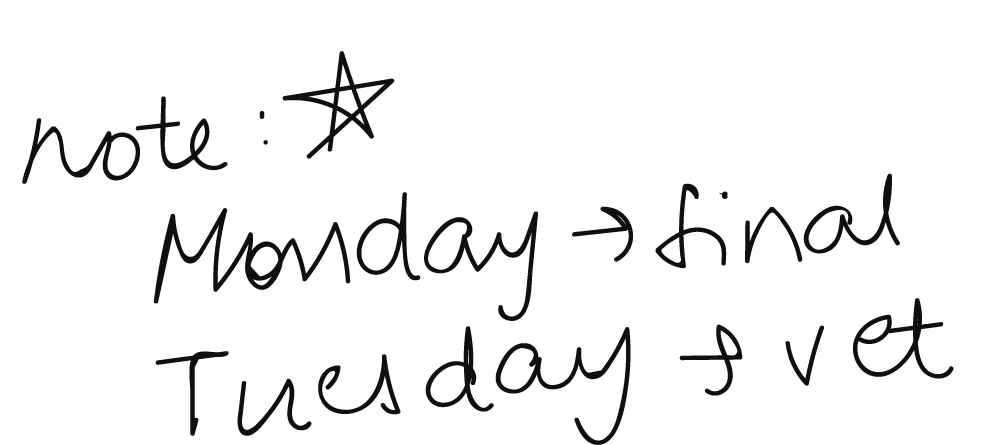 note: ☆
Monday → final
Tuesday → vet